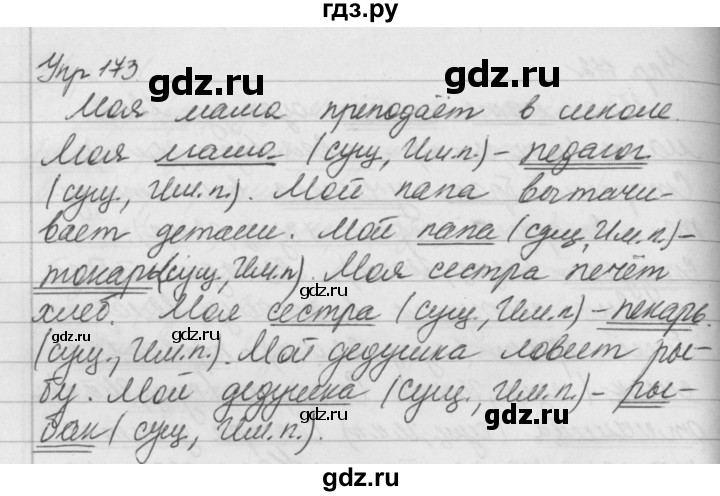 гдз.ру
Упр 173
Моя мама преподаёт в школе.
Моя мама (сущ, Им.п.) – педагог
(сущ., Им.п.). Мой папа вытачи-
вает детали. Мой папа (сущ, Им.п.) –
токарь (сущ, Им.п). Моя сестра печёт
хлеб. Моя сестра (сущ., Им.п) – пекарь.
(сущ., Им.п.). Мой дедушка ловит ры-
бу. Мой дедушка (сущ., Им.п.) – ры-
бак (сущ, Им.п.).
gdz.ru
gdz.ru
gdz.ru
gdz.ru
gdz.ru
gdz.ru
gdz.ru
gdz.ru
gdz.ru
gdz.ru
gdz.ru